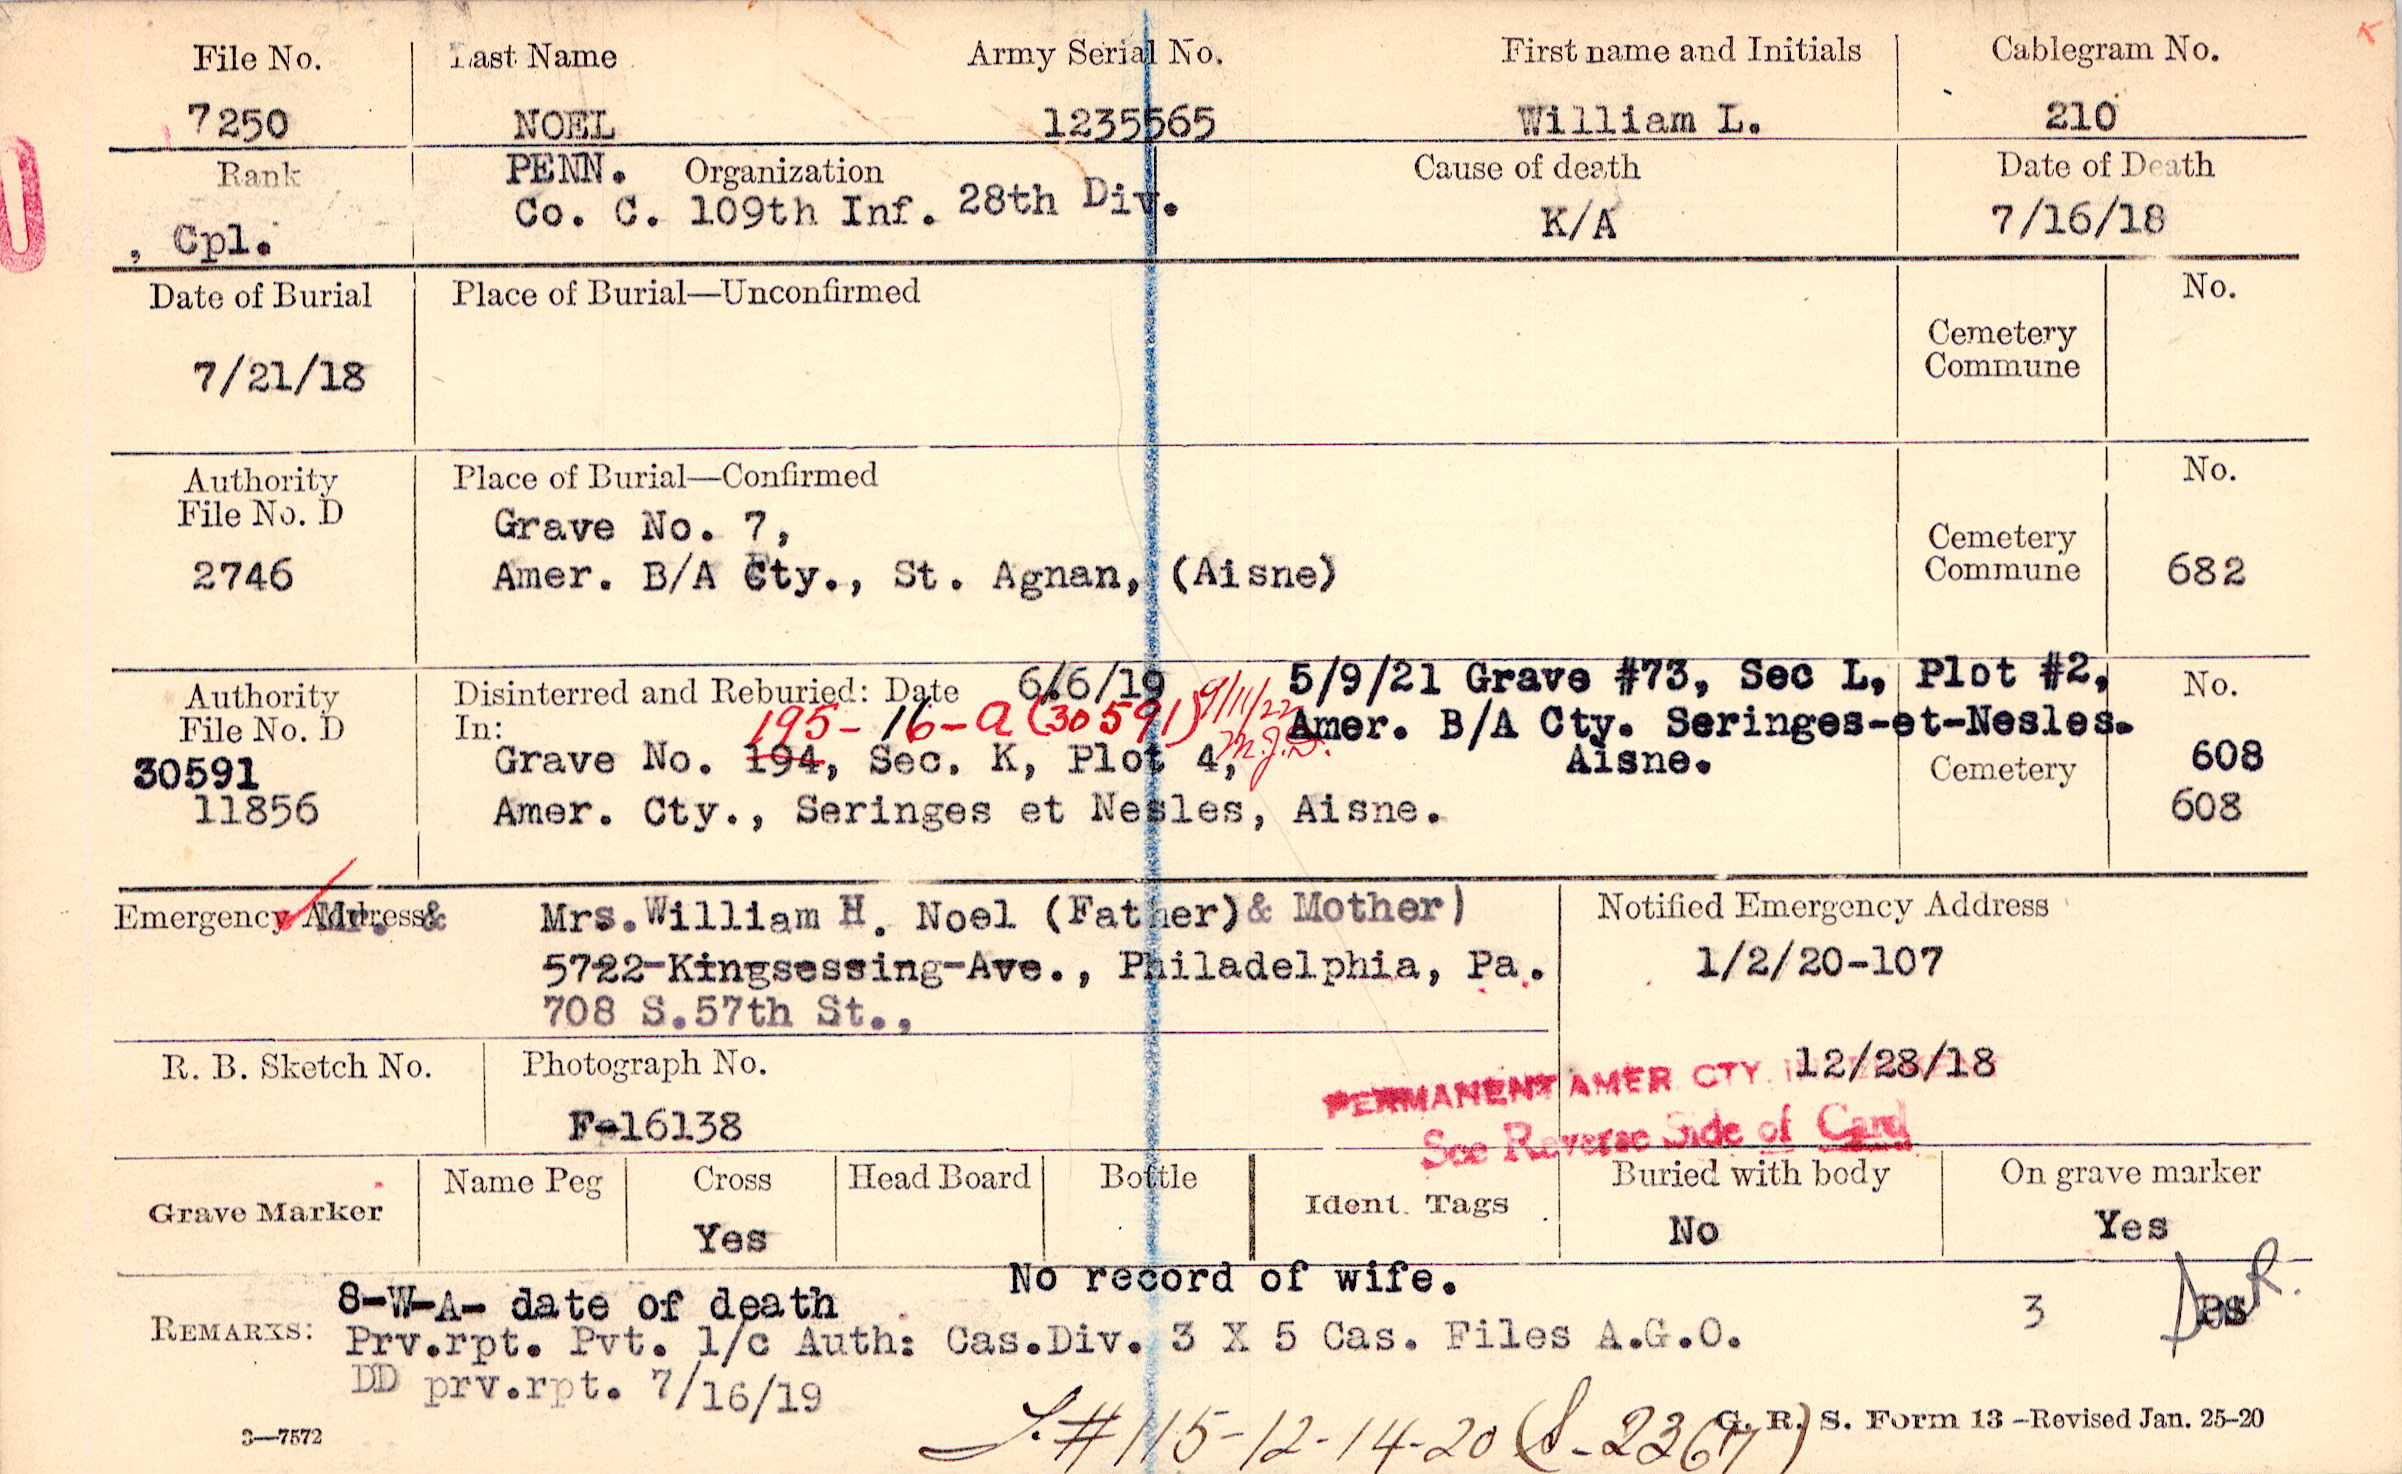 File No. Last Name Army Serial No. First name and Initials Cablegram No.
7250 NOEL 1235565 William L. 210
Rank PENN. Organization Cause of death Date of Death
, Cpl. Co. C. 109th Inf. 28th Div. K/A 7/16/18
Date of Burial Place of Burial—Unconfirmed No.
7/21/18 Cemetery
Commune
Authority Place of Burial—Confirmed No.
File No. D Grave No. 7,
2746 Amer. B/A Cty., St. Agnan, (Aisne) Cemetery
Commune 682
Authority Disinterred and Reburied: Date 6/6/19 5/9/21 Grave #73, Sec L, Plot #2, No.
File No. D In: 195-16-a (30591) 9/11/22 Amer. B/A Cty. Seringes-et-Nesles.
M.J.D.
30591 Grave No. 194, Sec. K, Plot 4, Aisne. Cemetery 608
11856 Amer. Cty., Seringes et Nesles, Aisne. 608
Emergency Address Mr. & Mrs. William H. Noel (Father) & Mother) Notified Emergency Address
5722-Kingsessing-Ave., Philadelphia, Pa. 1/2/20-107
708 S.57th St.,
R. B. Sketch No. Photograph No. 12/28/18
PERMANENT AMER CTY.
F-16138 See Reverse Side of Card
Grave Marker Name Peg Cross Head Board Bottle Ident. Tags Buried with body On grave marker
Yes No Yes
No record of wife.
REMARKS: 8-W-A- date of death 3
Prv.rpt. Pvt. 1/c Auth: Cas.Div. 3 X 5 Cas. Files A.G.O.
DD prv.rpt. 7/16/19
S.#115-12-14-20 (S-2367)
3—7572 G. R. S. Form 13 -Revised Jan. 25-20